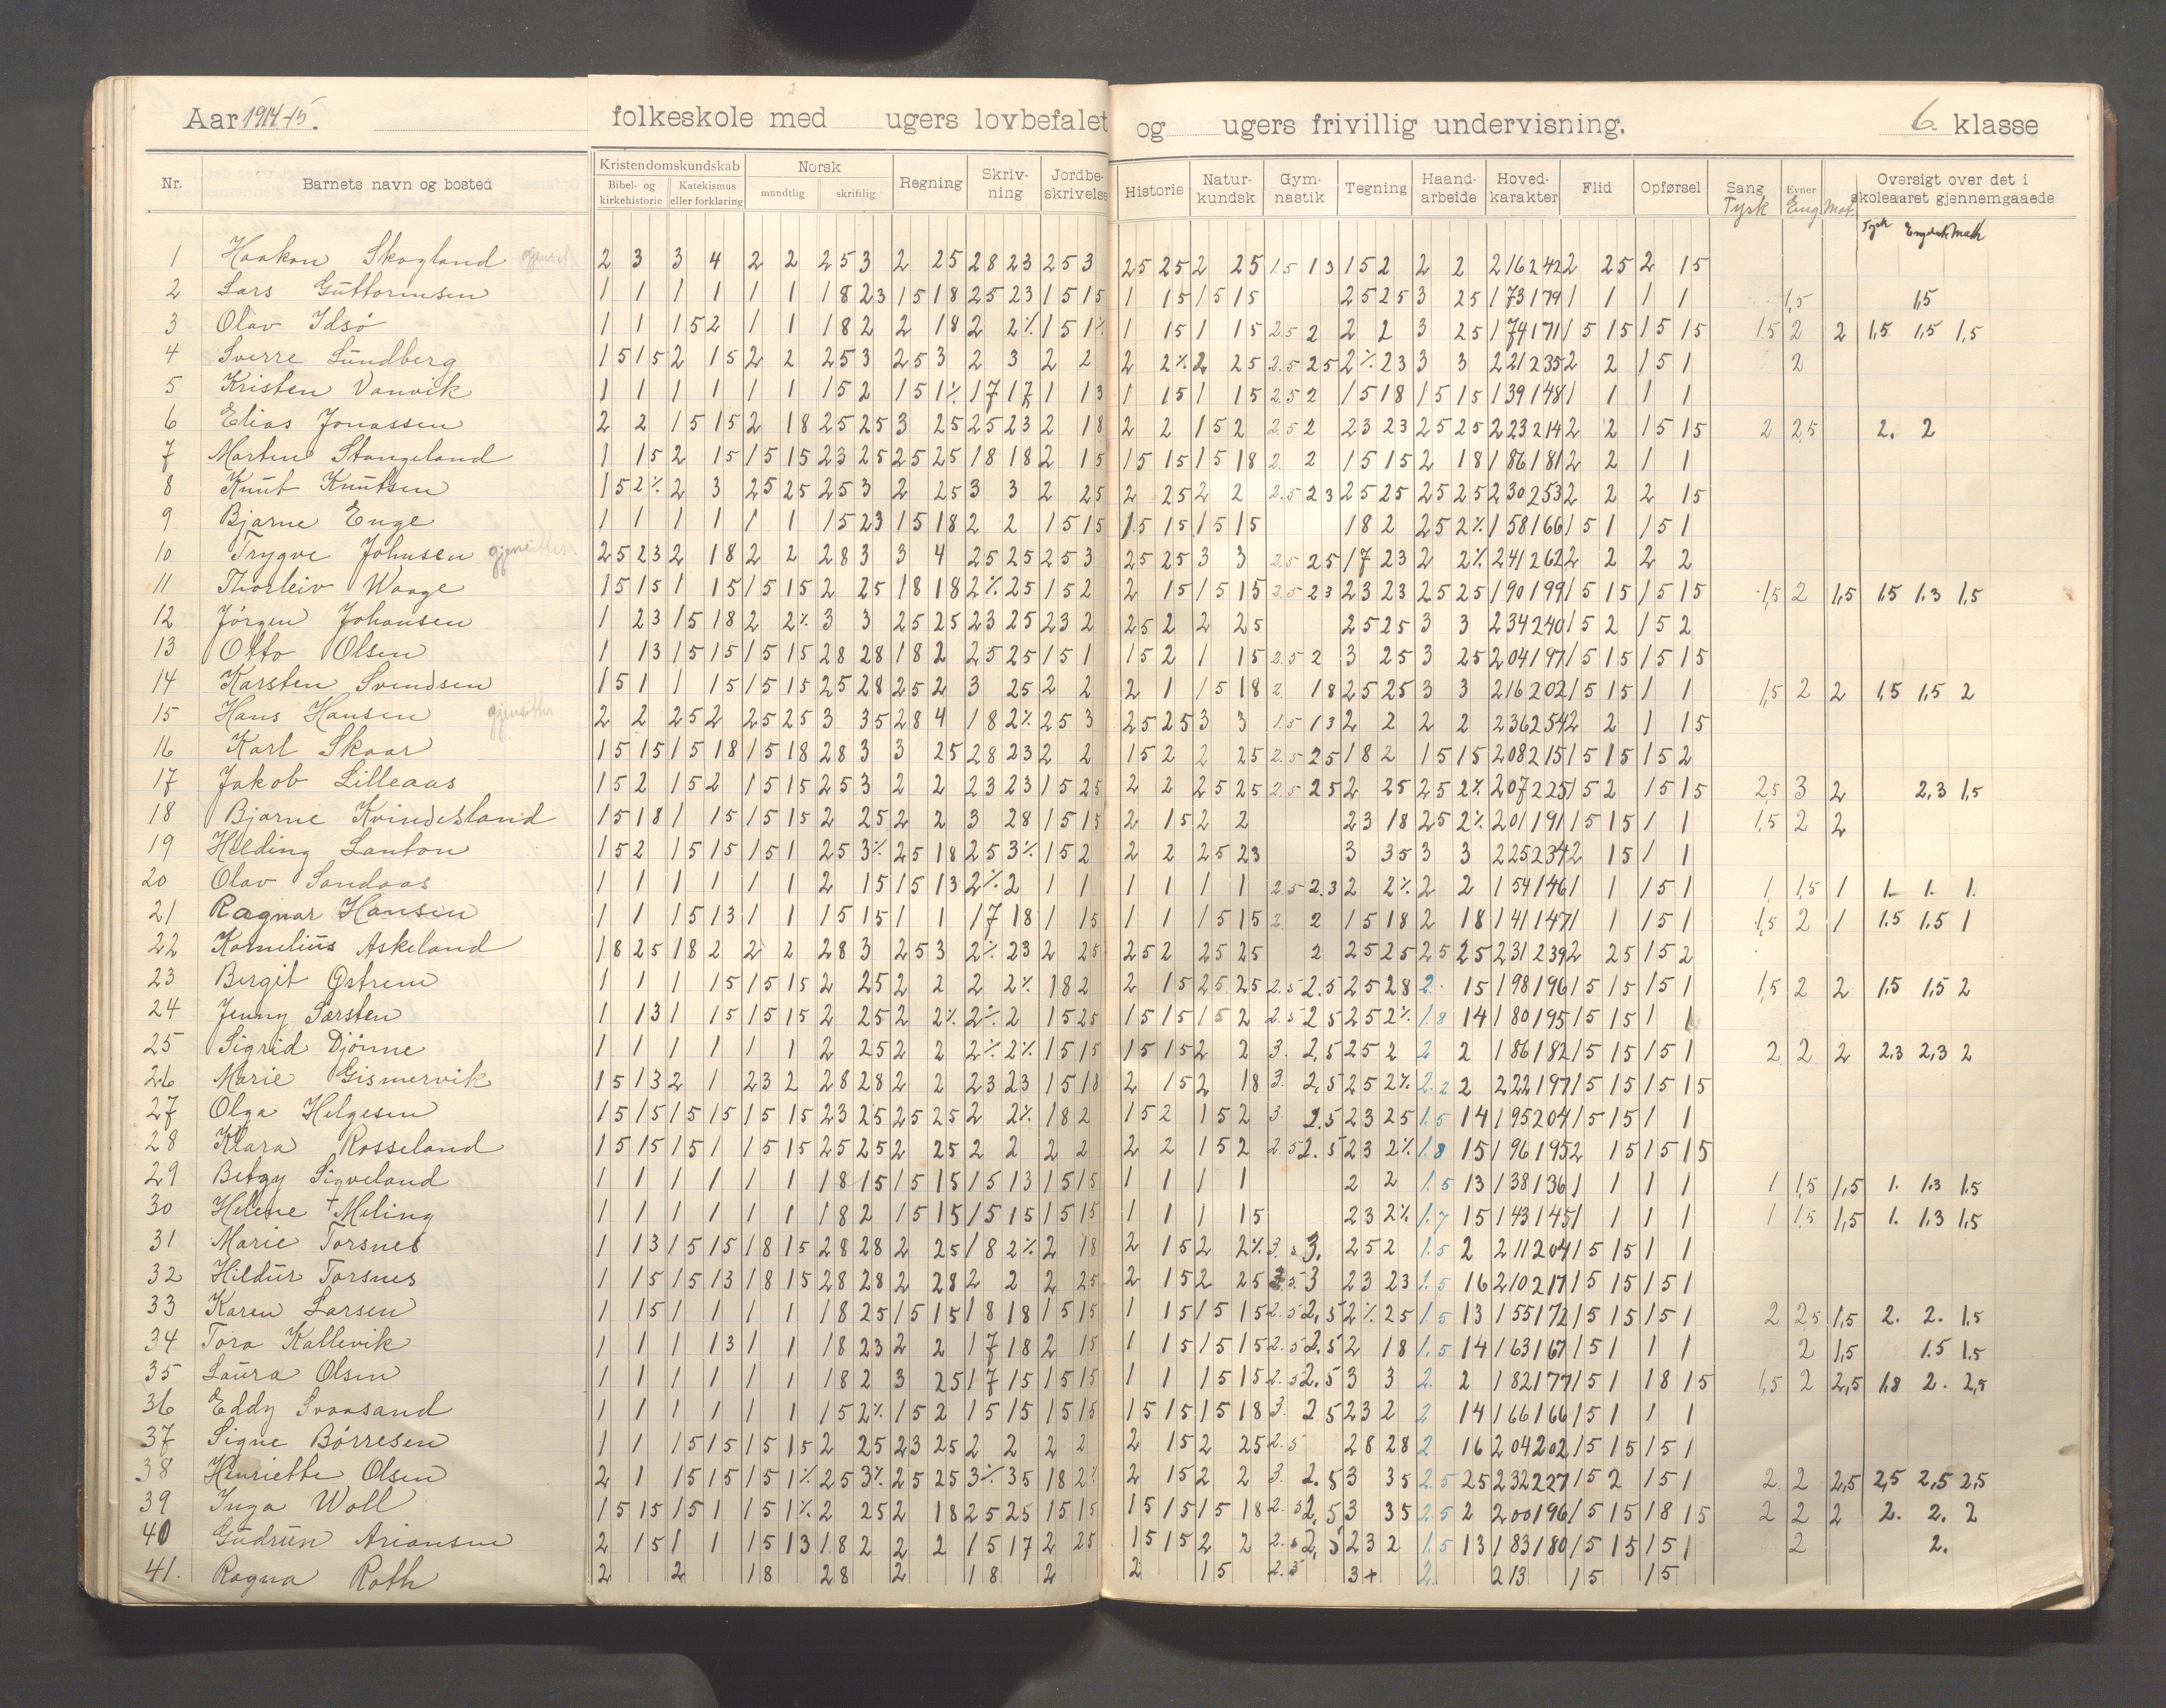 Aar 1914-15. folkeskole med ugers lovbefalet og ugers frivillig undervisning. 6. klasse
Nr. Barnets navn og bosted Kristendomskundskab Norsk Regning Skriv-ning Jordbe-skrivelse Historie Natur-kundsk Gym-nastik Tegning Haand-arbeide Hoved-karakter Flid Opførsel Sang Evner Oversigt over det i skoleaaret gjennemgaaede
Bibel- og kirkehistorie Katekismus eller forklaring mundtlig skriftlig Tysk Eng Mat.
Tysk Engelsk Math
1 Haakon Skogland 2 3 3 4 2 2 25 3 2 25 28 23 25 3 25 25 2 25 1.5 13 15 2 2 2 216 242 2 25 2 15
2 Lars Guttormsen 1 1 1 1 1 1 18 23 15 18 25 23 15 15 1 15 15 15 25 25 3 25 173 179 1 1 1 1 1,5 1,5
3 Olav Idsö 1 1 15 2 1 1 18 2 2 18 2 2% 15 1% 1 15 1 15 2.5 2 2 2 3 25 174 171 15 15 15 15 1,5 2 2 1,5 1,5 1,5
4 Sverre Lundberg 15 15 2 15 2 2 25 3 25 3 2 3 2 2 2 2% 2 25 2.5 25 2% 23 3 3 221 235 2 2 15 1 2
5 Kristen Vanvik 1 1 1 1 1 1 15 2 15 1% 17 17 1 13 1 15 1 15 2.5 2 15 18 15 15 139 148 1 1 1 1
6 Elias Jonassen 2 2 15 15 2 18 25 25 3 25 25 23 2 18 2 2 15 2 2.5 2 23 23 25 25 223 214 2 2 15 15 2 2,5 2. 2
7 Morten Stangeland 1 15 2 15 15 15 23 25 25 25 18 18 2 15 15 15 15 18 2. 2 15 15 2 18 186 181 2 2 1 1
8 Knut Knutsen 15 2% 2 3 25 25 25 3 2 25 3 3 2 25 2 25 2 2 2.5 23 25 25 25 25 230 253 2 2 2 15
9 Bjarne Enge 1 1 1 1 1 1 15 23 15 18 2 2 15 15 15 15 15 15 18 2 25 2% 158 166 15 1 15 1
10 Trygve Johnsen 25 23 2 18 2 2 28 3 3 4 25 25 25 3 25 25 3 3 2.5 25 17 23 2 2% 241 262 2 2 2 2
11 Thorleiv Waage 15 15 1 15 15 15 2 25 18 18 2% 25 15 2 2 15 15 15 2.5 23 23 23 25 25 190 199 15 15 15 15 1,5 2 1,5 1.5 1.3 1,5
12 Jörgen Johansen 1 23 15 18 2 2% 3 3 25 25 23 25 23 2 25 2 2 25 25 25 3 3 234 240 15 2 15 2
13 Otto Olsen 1 13 15 15 15 15 28 28 18 2 25 25 15 1 15 2 1 15 2.5 2 3 25 3 25 204 197 15 15 15 15
14 Karsten Svendsen 15 1 1 15 15 15 25 28 25 2 3 25 2 2 2 1 15 18 2. 18 25 25 3 3 216 202 15 15 1 1 1,5 2 2 1,5 1,5 2
15 Hans Hansen 2 2 25 2 25 25 3 35 28 4 18 2% 25 3 25 25 3 3 1.5 13 2 2 2 2 236 254 2 2 1 15
16 Karl Skaar 15 15 15 18 15 18 28 3 3 25 28 23 2 2 15 2 2 25 2.5 25 18 2 15 15 208 215 15 15 15 2
17 Jakob Lilleaas 15 2 15 2 15 15 25 3 2 2 23 23 15 25 2 2 25 25 2.5 25 2 25 25 2% 207 225 15 2 15 15 2,5 3 2 2,3 1,5
18 Bjarne Kvindesland 15 18 1 15 15 15 2 25 2 2 3 28 15 15 2 15 2 2 23 18 25 2% 201 191 15 15 1 1 1,5 2 2
19 Hilding Lanton 15 2 15 15 15 1 25 3% 25 18 25 3% 15 2 2 2 25 23 3 35 3 3 225 234 2 15 1 1
20 Olav Sandaas 1 1 1 1 1 1 2 15 15 13 2% 2 1 1 1 1 1 1 2.5 2.3 2 2% 2 2 154 146 1 1 15 1 1 1,5 1 1. 1. 1.
21 Ragnar Hansen 1 1 15 13 1 1 15 15 1 1 17 18 1 15 1 1 15 15 2. 2 15 18 2 18 141 147 1 1 15 1 1,5 2 1 1.5 1.5 1
22 Kornelius Askeland 18 25 18 2 2 2 28 3 25 3 2% 23 2 25 25 2 25 25 2 25 25 25 25 231 239 2 25 15 2
23 Bergit Østrem 1 1 1 15 15 15 2 25 2 2 2 2% 18 2 2 15 25 25 2.5 2.5 25 28 2. 15 198 196 15 15 15 1 1,5 2 2 1.5 1.5 2
24 Jenny Sørsten 1 13 1 15 15 15 2 25 2 2% 2% 2 15 25 15 15 15 2 2.5 25 25 2% 1.8 14 180 195 15 15 1 1
25 Sigrid Djönne 1 1 1 1 1 1 2 25 2 2 2% 2% 15 15 15 15 2 2 3. 2,5 25 2 2 2 186 182 15 15 15 1 2 2 2 2.3 2,3 2
26 Marie Gismervik 15 13 2 1 23 2 28 28 2 2 23 23 15 18 2 15 2 18 3. 2,5 25 2% 2.2 2 222 197 15 15 15 15
27 Olga Helgesen 15 15 15 15 15 15 23 25 25 25 2 2% 18 2 15 2 15 2 3. 2.5 23 25 1.5 14 195 204 15 15 1 1
28 Klara Rosseland 15 15 15 1 15 15 25 25 2 25 2 2 2 2 2 2 15 2 2.5 2.5 23 2% 1.8 15 196 195 2 15 15 15
29 Betzy Sigveland 1 1 1 1 1 1 18 15 15 15 15 13 15 15 1 1 1 1 2 2 1.5 13 138 136 1 1 1 1 1 1,5 1,5 1. 1.3 1.5
30 Helene + Meling 1 1 1 1 1 1 18 2 15 15 15 15 15 15 1 1 1 15 23 2% 1.7 15 143 145 1 1 1 1 1 1,5 1,5 1. 1.3 1,5
31 Marie Torsnes 1 13 15 15 18 15 28 28 2 25 18 2% 2 18 2 15 2 2% 3.5 3. 25 2 1.5 2 211 204 15 15 1 1
32 Hildur Torsnes 1 15 15 13 18 15 28 28 2 28 2 2 2 25 2 15 2 25 3.5 3 23 23 1.5 16 210 217 15 15 15 1
33 Karen Larsen 1 15 1 1 1 1 18 25 15 15 18 18 15 15 1 15 15 15 2.5 2,5 2% 25 1.5 13 155 172 15 15 15 1 2 2,5 1,5 2. 2. 1.5
34 Tora Kallevik 1 1 1 13 1 1 18 23 2 2 17 18 2 15 1 15 15 15 2.5 2.5 2 18 1.5 14 163 167 15 1 1 1 2 1,5 1.5 1.5
35 Laura Olsen 1 1 1 1 1 1 18 2 3 25 17 15 15 15 1 1 15 15 2.5 2.5 3 3 2. 2 182 177 15 1 18 15 1,5 2 2,5 1,8 2. 2,5
36 Eddy Svaasand 1 1 1 1 1 1 15 2% 15 2 15 15 15 15 15 15 15 18 3. 2.5 23 2 2 14 166 166 15 1 1 1
37 Signe Börresen 1 1 15 15 15 15 2 25 23 25 2 2 2 2 2 15 2 25 2.5 28 28 2 16 204 202 15 15 15 1
38 Henriette Olsen 2 1 15 15 15 1% 25 3% 25 25 3% 35 18 2% 2 15 2 2 3. 2.5 3 35 2.5 25 232 227 15 2 15 1 2 2 2,5 2,5 2,5 2,5
39 Inga Woll 15 15 15 1 15 1% 2 25 2 18 25 25 15 15 15 15 15 18 2.5 2,5 3 35 2.5 2 200 196 15 15 18 15 2 2 2 2. 2. 2
40 Gudrun Ariansen 2 15 1 1 15 13 18 2 2 2 15 17 2 25 15 15 2 2 2.5 2,5 23 2 1.5 13 183 180 15 15 15 1 2 2.
41. Ragna Roth 2 2 18 28 2 18 2 2 15 2.5 3+ 2. 213 15 15